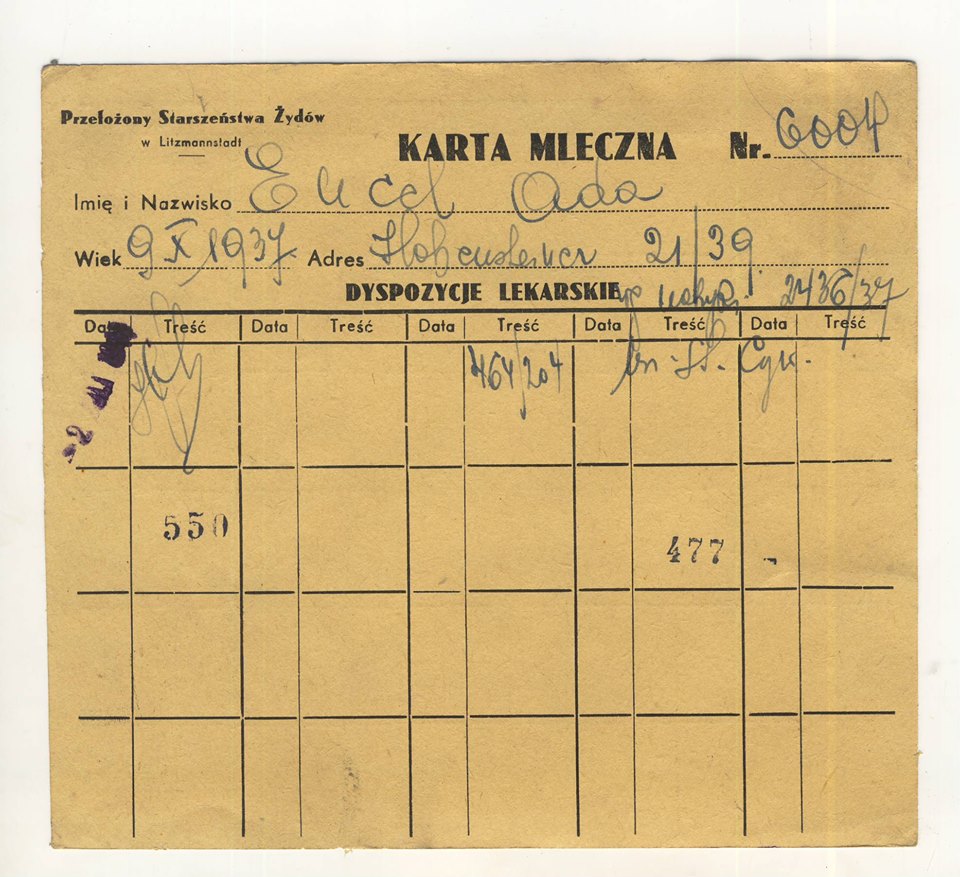 Przełożony Starszeństwa Żydów
w Litzmannstadt
KARTA MLECZNA Nr. 6004
Imię i Nazwisko Ada
Wiek 9 X 1937 Adres 21/39
DYSPOZYCJE LEKARSKIE 2436/37
Data Treść Data Treść Data Treść Data Treść Data Treść
464/204
550
477 -